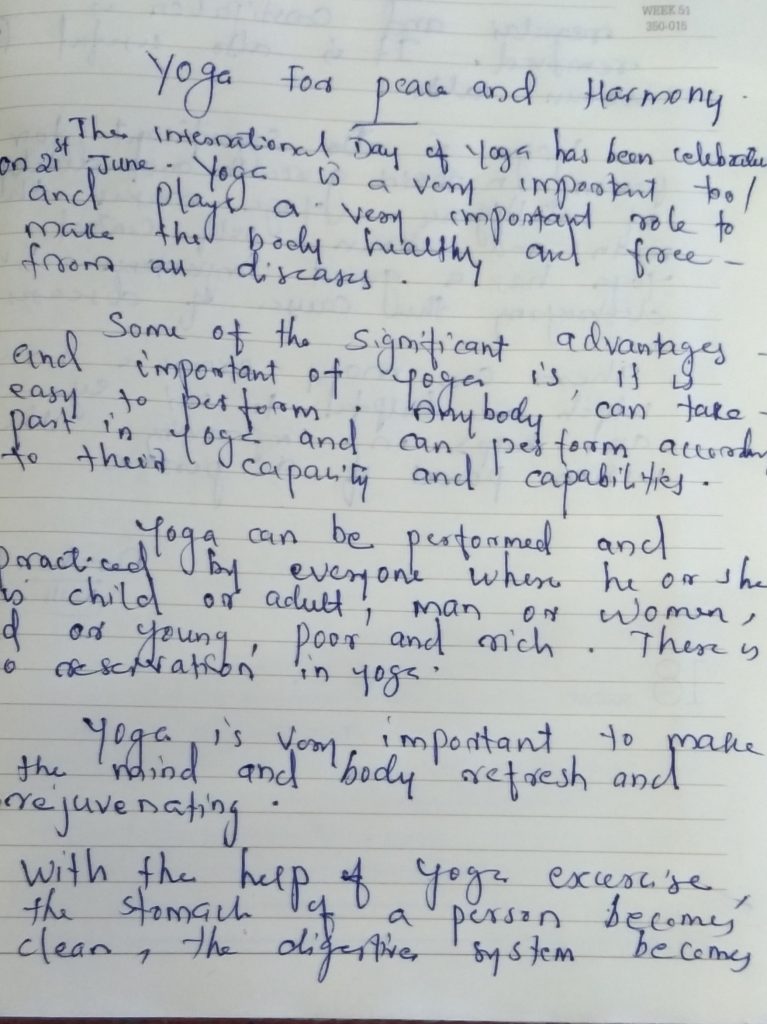 WEEK 51
350-015
Yoga For peace and Harmony.
The International Day of Yoga has been celebrate
on 21st June. Yoga is a very important tool
and plays a very important role to
make the body healthy and free -
from all diseases.
Some of the significant advantages -
and important of yoga is, it is
easy to perform. Anybody can take -
part in yoga and can perform accordin
to their capacity and capabilities.
Yoga can be performed and
practiced by everyone where he or she
is child or adult, man or women,
d or young, poor and rich. There is
o reservation in yoga.
Yoga is very important to make
the mind and body refresh and
rejuvenating.
With the help of yoga excercise,
the stomach of a person becomes
clean, the digestive system becomes